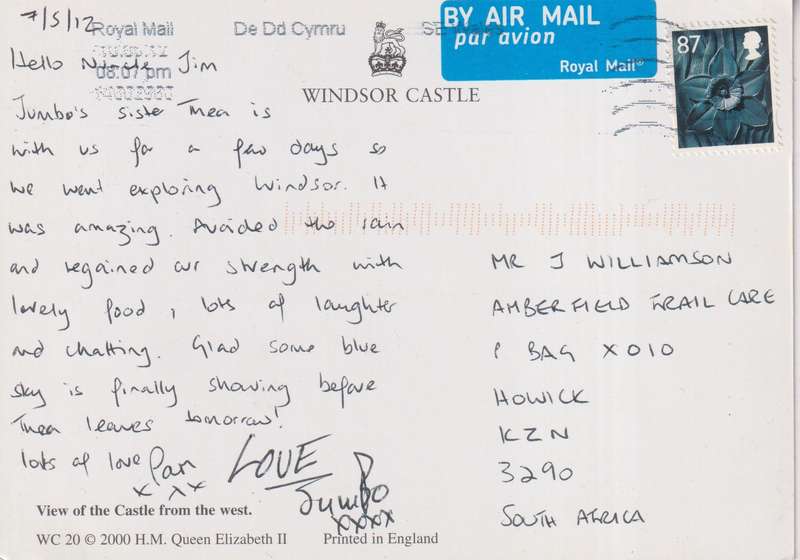 7/5/12
Royal Mail De Dd Cymru
08:07 pm
BY AIR MAIL
par avion
Royal Mail®
87
WINDSOR CASTLE
Hello Nuncle Jim
Jumbo's sister Thea is
with us for a few days so
we went exploring Windsor. It
was amazing. Avoided the rain
and regained our strength with
lovely food, lots of laughter
and chatting. Glad some blue
sky is finally showing before
Thea leaves tomorrow!
lots of love Pam
x x x
LOVE
Jumbo
xxxx
MR J WILLIAMSON
AMBERFIELD FRAIL CARE
P BAG X010
HOWICK
KZN
3290
SOUTH AFRICA
View of the Castle from the west.
WC 20 © 2000 H.M. Queen Elizabeth II Printed in England